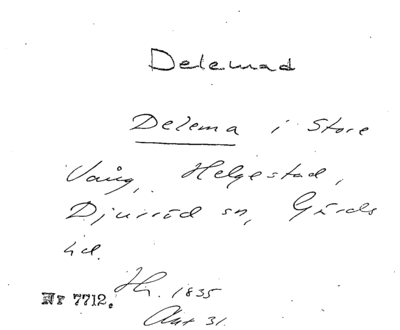 Delemad
Delema i Store
Vång, Helgestad,
Djurröd sn, Gärds
hd.
Hr. 1835
Nr 7712.
Akt 31.